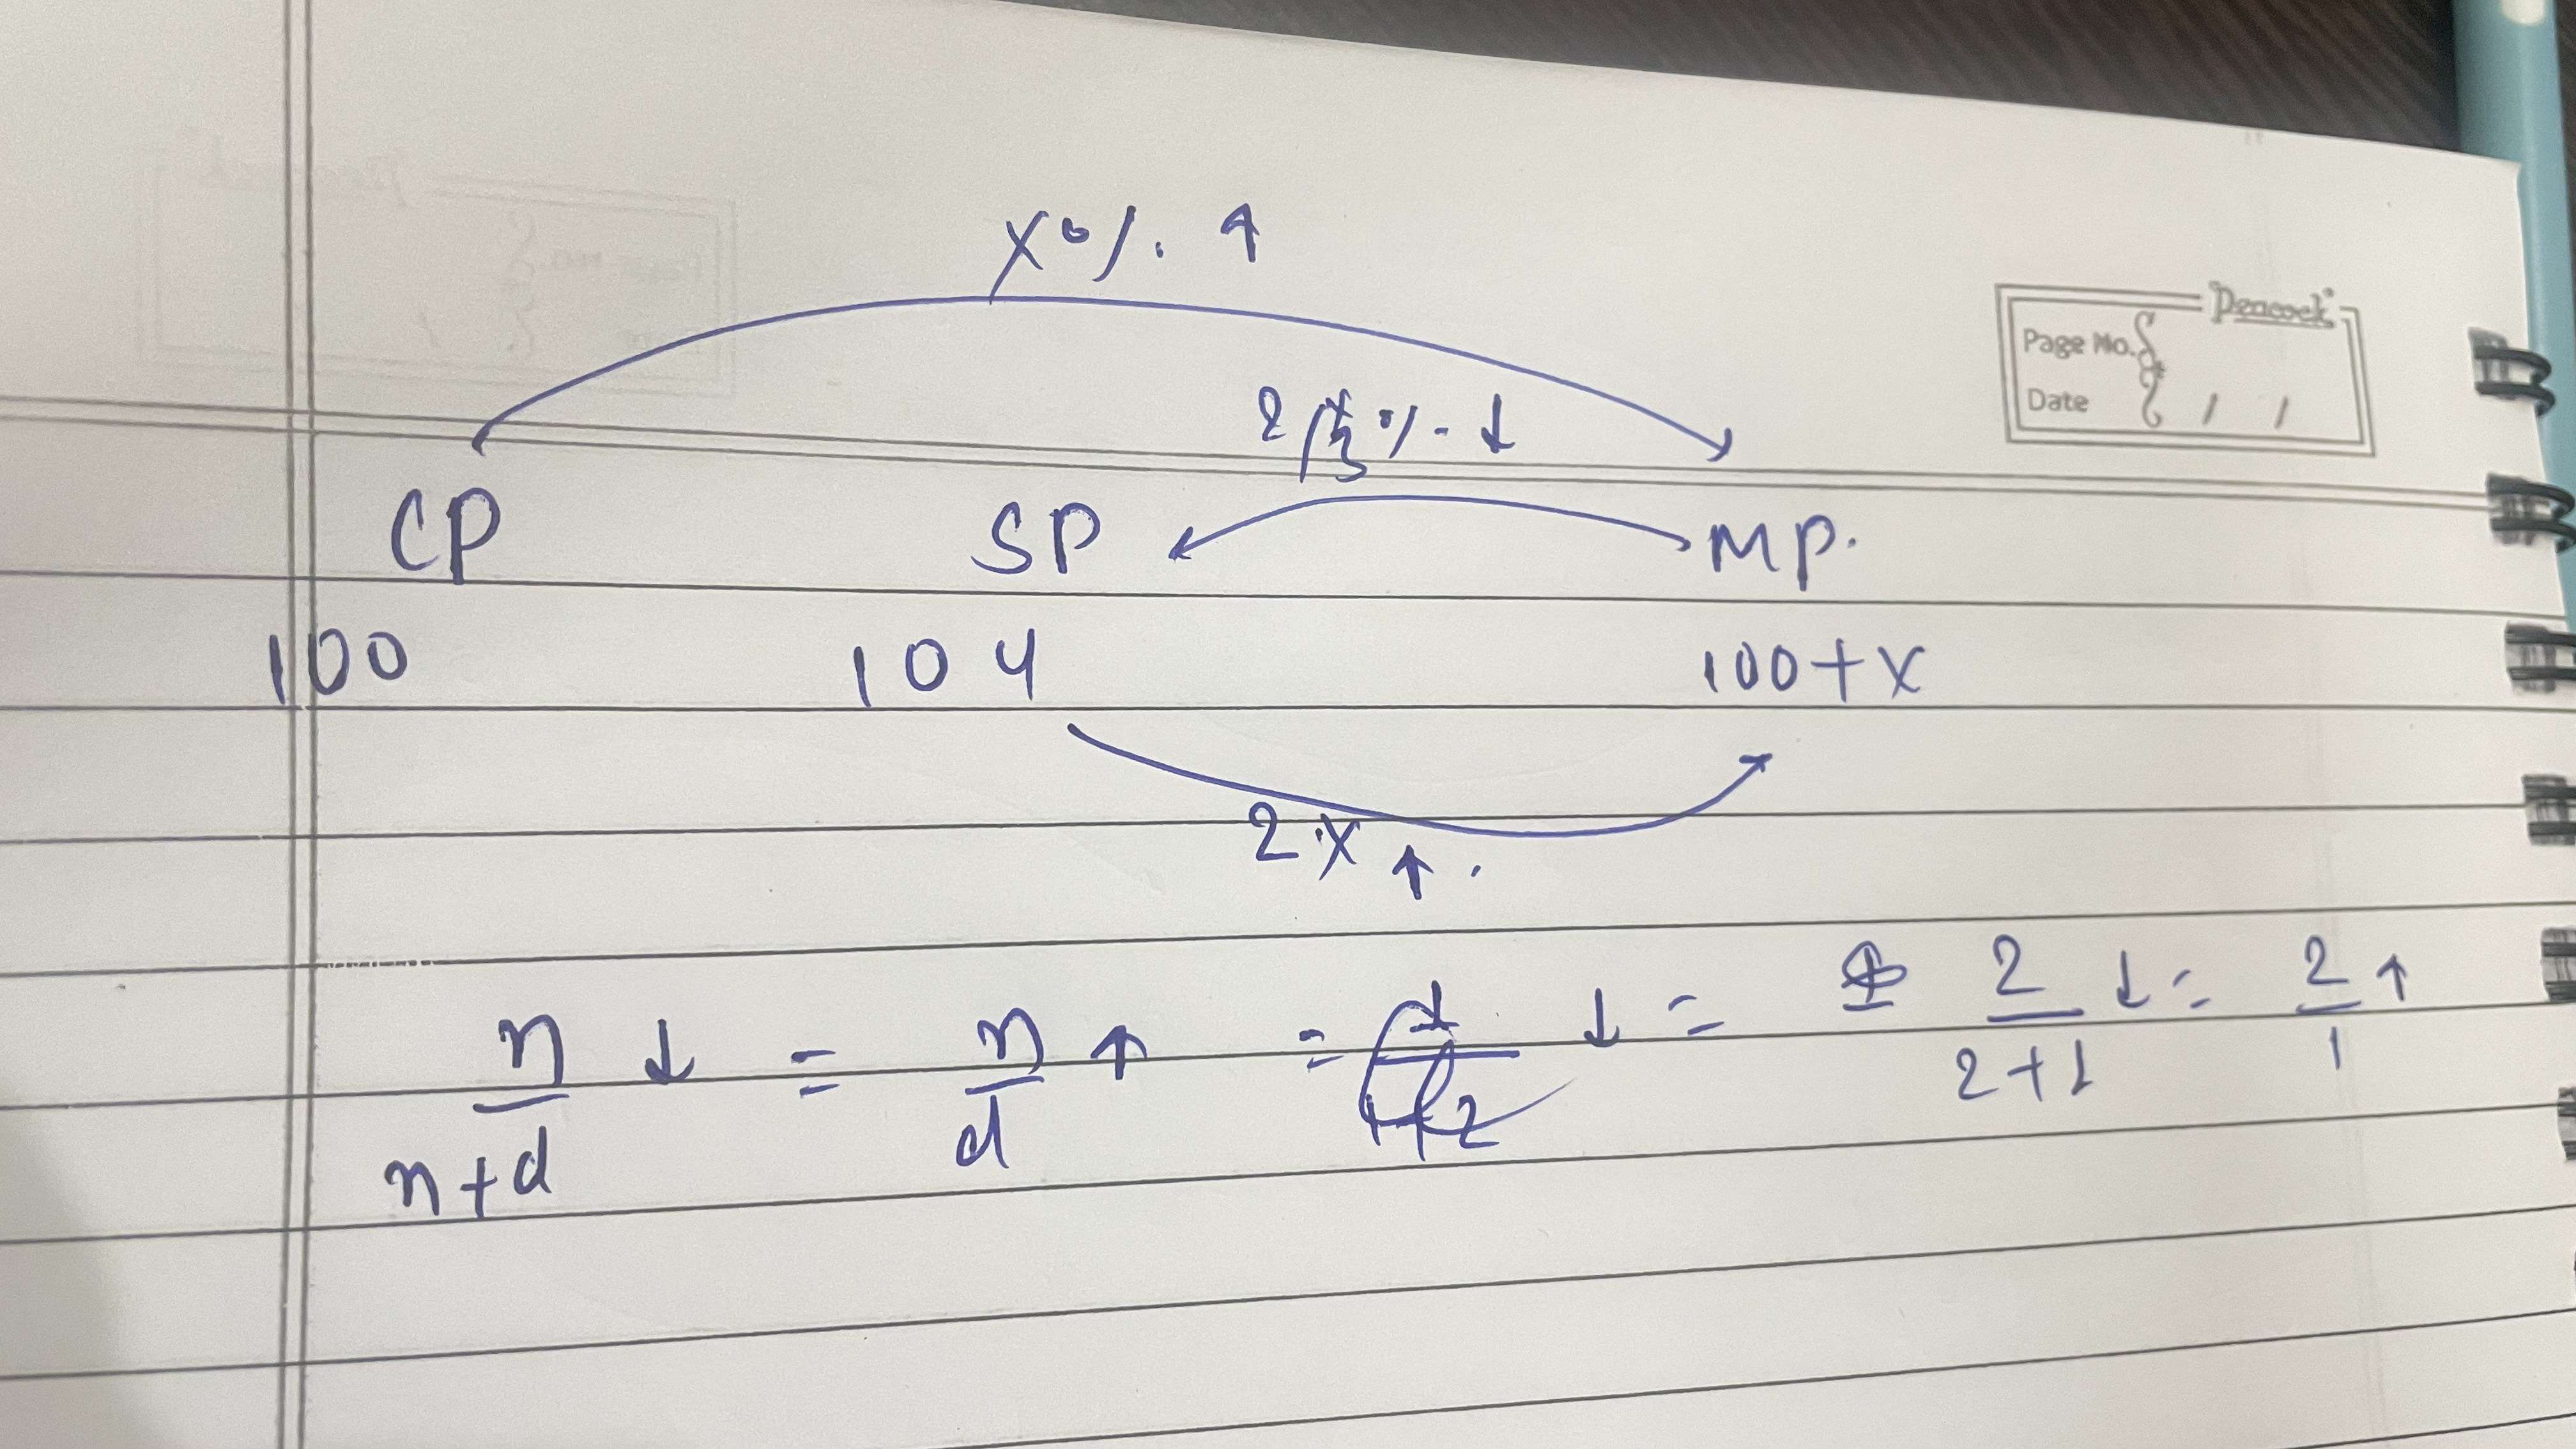 x% ↑
Peacock
Page No.
Date / /
2/3 % ↓
CP SP MP.
100 104 100+x
2x ↑.
n/n+d ↓ = n/d ↑ = ↓ = 2/2+1 ↓ = 2/1 ↑